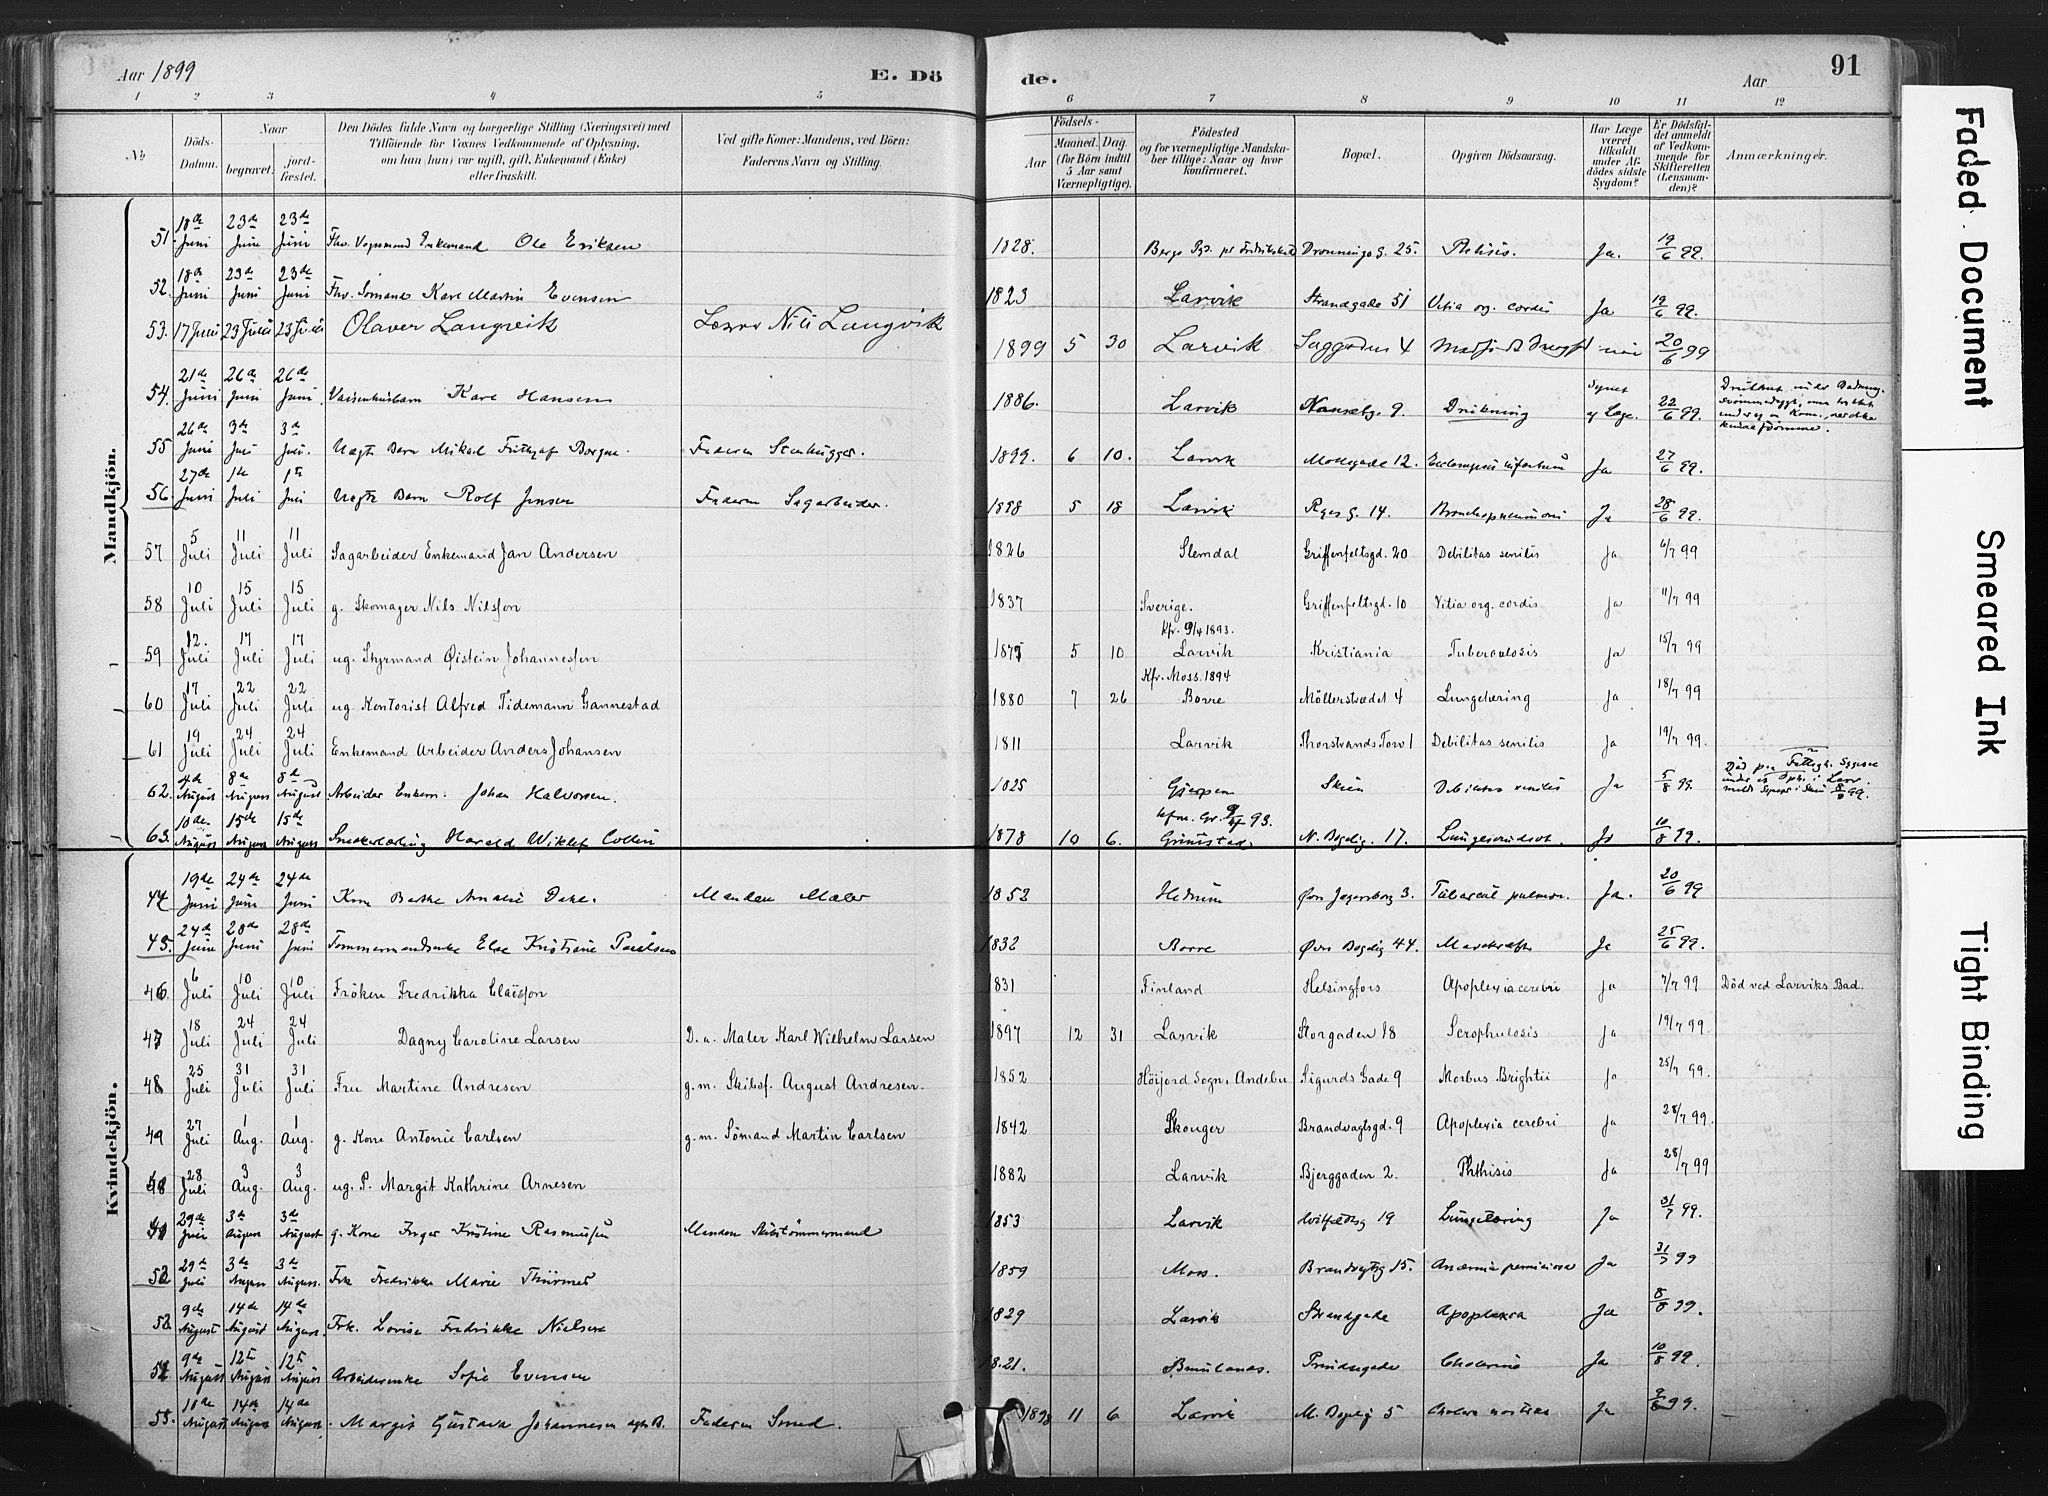 Aar 1899
E. Dö
de.
Aar
91
1 2 3 4 5 6 7 8 9 10 11 12
No
Döds-Datum.
Naar
begravet.
jord-fæstet.
Den Dödes fulde Navn og borgerlige Stilling (Næringsvei) med
Tilföiende for Voxnes Vedkommende af Oplysning,
om han (hun) var ugift, gift, Enkemand (Enke)
eller fraskilt.
Ved gifte Koner: Mandens, ved Börn:
Faderens Navn og Stilling.
Födsels-
Aar
Maaned. Dag.
(for Börn indtil
5 Aar samt
Værnepligtige).
Födested
og for værnepligtige Mandska-
ber tillige: Naar og hvor
konfirmeret.
Bopæl.
Opgiven Dödsaarsag.
Har Læge
været
tilkaldt
under Af-
dödes sidste
Sygdom?
Er Dödsfal-
det anmeldt
af Vedkom-
mende for
Skifteretten
(Lensman-
den)?
Anmærkninger.
Mandkjön.
51. 18de Juni 23de Juni 23de Juni Fhv. Vognmand Enkemand Ole Eriksen 1828. Dronnings G. 25. Phtisis. Ja. 19/6 99.
52. 18de Juni 23de Juni 23de Juni Fhv. Sömand Karl Martin Evensen 1823 Larvik Strandgade 51 Vitia org. cordis Ja 19/6 99.
53. 17 Juni 23 Juni 23 Juni Olaver Langvik Nils Langvik 1899 5 30 Larvik 4 20/6 99
54. 21de Juni 26de Juni 26de Juni Vaisenhusbarn Karl Hansen 1886. Larvik Nansetg. 9. Drukning Synet af Læge. 22/6 99.
55 26de Juni 3de Juli 3de Juli. Uægte Barn Mikael Frithjof Borgen. Faderen Stenhugger. 1899. 6 10. Larvik Mollegade 12. Ja 27/6 99.
56. 27de Juni 1te Juli 1te Juli Uægte Barn Rolf Jensen Faderen Sagarbeider. 1898 5 18 Larvik G. 14. Bronchopneumoni Ja 28/6 99.
57 5 Juli 11 Juli 11 Juli Sagarbeider Enkemand Jan Andersen 1826 Slemdal Griffenfeltsgd. 20 Debilitas senilis Ja 6/7 99
58 10 Juli 15 Juli 15 Juli g. Skomager Nils Nilsson 1837 Sverige. Griffenfeltsgd. 10 Vitia org. cordis Ja 11/7 99
59 12. Juli 17 Juli 17 Juli ug. Styrmand Øistein Johannessen 1875 5 10 Kfr. 9/4 1893. Larvik Kristiania Tuberculosis Ja 15/7 99
60 17 Juli 22 Juli 22 Juli ug. Kontorist Alfred Tidemann Gannestad 1880 7 26 Kfr. Moss. 1894 Borre Möllerstrædet 4 Lungetæring Ja 18/7 99
61 19 Juli 24 Juli 24 Juli Enkemand Arbeider Anders Johansen 1811 Larvik Thorstrands Torv 1 Debilitas senilis Ja 19/7 99.
62. 4de August 8de August 8de August Arbeider Enkem. Johan Halvorsen. 1825 Gjerpen Skien Debilitas senilis Ja 5/8 99.
63. 10de August 15de August 15de August Snekkerlærling Harald Collin 1878 10 6. Grimstad 17. Ja 10/8 99.
Kvindekjön.
44 19de Juni 24de Juni 24de Juni Kone Berthe Amalie Dahl. Manden Maler 1852 Hedrum Øvr Jegersborg 3. Tubercul pulmon. Ja. 20/6 99
45. 24de Juni 28de Juni 28de Juni Tommermandsenke Else Kristiane Paulsen 1832 Borre Øvr Bogdig 44. Ja 25/6 99.
46. 6 Juli 10 Juli 10 Juli Fröken Fredrikka Claësson 1831 Finland Helsingfors Apoplexia cerebri Ja 7/7 99 Död ved Larviks Bad.
47 18 Juli 24 Juli 24 Juli Dagny Caroline Larsen D. a. Maler Karl Wilhelm Larsen 1897 12 31 Larvik Storgaden 18 Scrophulosis Ja 19/7 99.
48 25 Juli 31 Juli 31 Juli Fru Martine Andresen g. m. Skibsf. August Andresen. 1852 Höijord Sogn, Andebu Sigurds Gade 9 Morbus Brightii Ja 25/7 99.
49 27 Juli 1 Aug. 1 Aug. g. Kone Antonie Carlsen g. m. Sömand Martin Carlsen 1842 Skouger Brandvagtsgd. 9 Apoplexia cerebri Ja 28/7 99.
28 Juli 3 Aug. 3 Aug. ug. P. Margit Kathrine Arnesen 1882 Larvik Bjerggaden 2. Phthisis Ja 28/7 99
29de Juli 3de August 3de August g. Kone Inger Kristine Rasmussen Manden Skibstömmermand 1853 Larvik 19 Lungetæring Ja 31/7 99.
52 29de Juli 3de August 3de August. Frk Fredrikke Marie Thurmer 1859 Moss. Brandvgtsg 15. Anæmia perniciosa Ja 31/7 99
53. 9de August 14de August 14de August. Frk. Lovise Fredrikke Nielsen 1829 Larvik Strandgade Apoplexia Ja 8/8 99.
54 9de August 12te August 12te August Arbeiderenke Sofie Evensen 1821. Brunlanes. Cholerine Ja 10/8 99.
55. 10de August 14de August 14de August. Margit Gustava Johannesen Faderen Smed. 1898 11 6. Larvik 5 Cholera nostras Ja 99.
Faded Document
Smeared Ink
Tight Binding